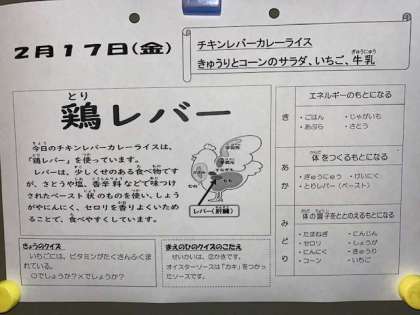 2月17日(金)
チキンレバーカレーライス
きゅうりとコーンのサラダ、いちご、牛乳
ぎゅうにゅう
とり
鶏レバー
今日のチキンレバーカレーライスは、
「鶏レバー」を使っています。
レバーは、少しくせのある食べ物で
すが、さとうや塩、香辛料などで味つけ
されたペースト状のものを使い、しょう
がやにんにく、セロリを香りよくいため
ることで、食べやすくしています。
レバー(肝臓)
エネルギーのもとになる
き
・ごはん ・じゃがいも
・あぶら ・さとう
体をつくるもとになる
あか
・ぎゅうにゅう ・けいにく
・とりレバー(ペースト)
体の調子をととのえるもとになる
みどり
・たまねぎ ・にんじん
・セロリ ・しょうが
・にんにく ・きゅうり
・コーン ・いちご
きょうのクイズ
いちごには、ビタミンがたくさんふくま
れている。
○でしょうか?×でしょうか?
まえのひのクイズのこたえ
せいかいは、②かきです。
オイスターソースは「カキ」をつかっ
たソースです。